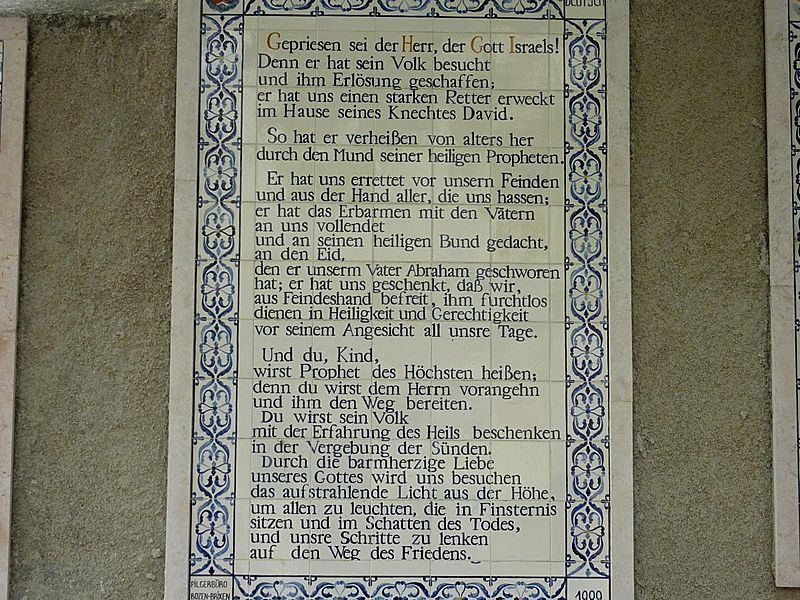 DEUTSCH
Gepriesen sei der Herr, der Gott Israels!
Denn er hat sein Volk besucht
und ihm Erlösung geschaffen;
er hat uns einen starken Retter erweckt
im Hause seines Knechtes David.
So hat er verheißen von alters her
durch den Mund seiner heiligen Propheten.
Er hat uns errettet vor unsern Feinden
und aus der Hand aller, die uns hassen;
er hat das Erbarmen mit den Vätern
an uns vollendet
und an seinen heiligen Bund gedacht,
an den Eid,
den er unserm Vater Abraham geschworen
hat; er hat uns geschenkt, daß wir,
aus Feindeshand befreit, ihm furchtlos
dienen in Heiligkeit und Gerechtigkeit
vor seinem Angesicht all unsre Tage.
Und du, Kind,
wirst Prophet des Höchsten heißen;
denn du wirst dem Herrn vorangehn
und ihm den Weg bereiten.
Du wirst sein Volk
mit der Erfahrung des Heils beschenken
in der Vergebung der Sünden.
Durch die barmherzige Liebe
unseres Gottes wird uns besuchen
das aufstrahlende Licht aus der Höhe,
um allen zu leuchten, die in Finsternis
sitzen und im Schatten des Todes,
und unsre Schritte zu lenken
auf den Weg des Friedens.
PILGERBÜRO
BOZEN-BRIXEN